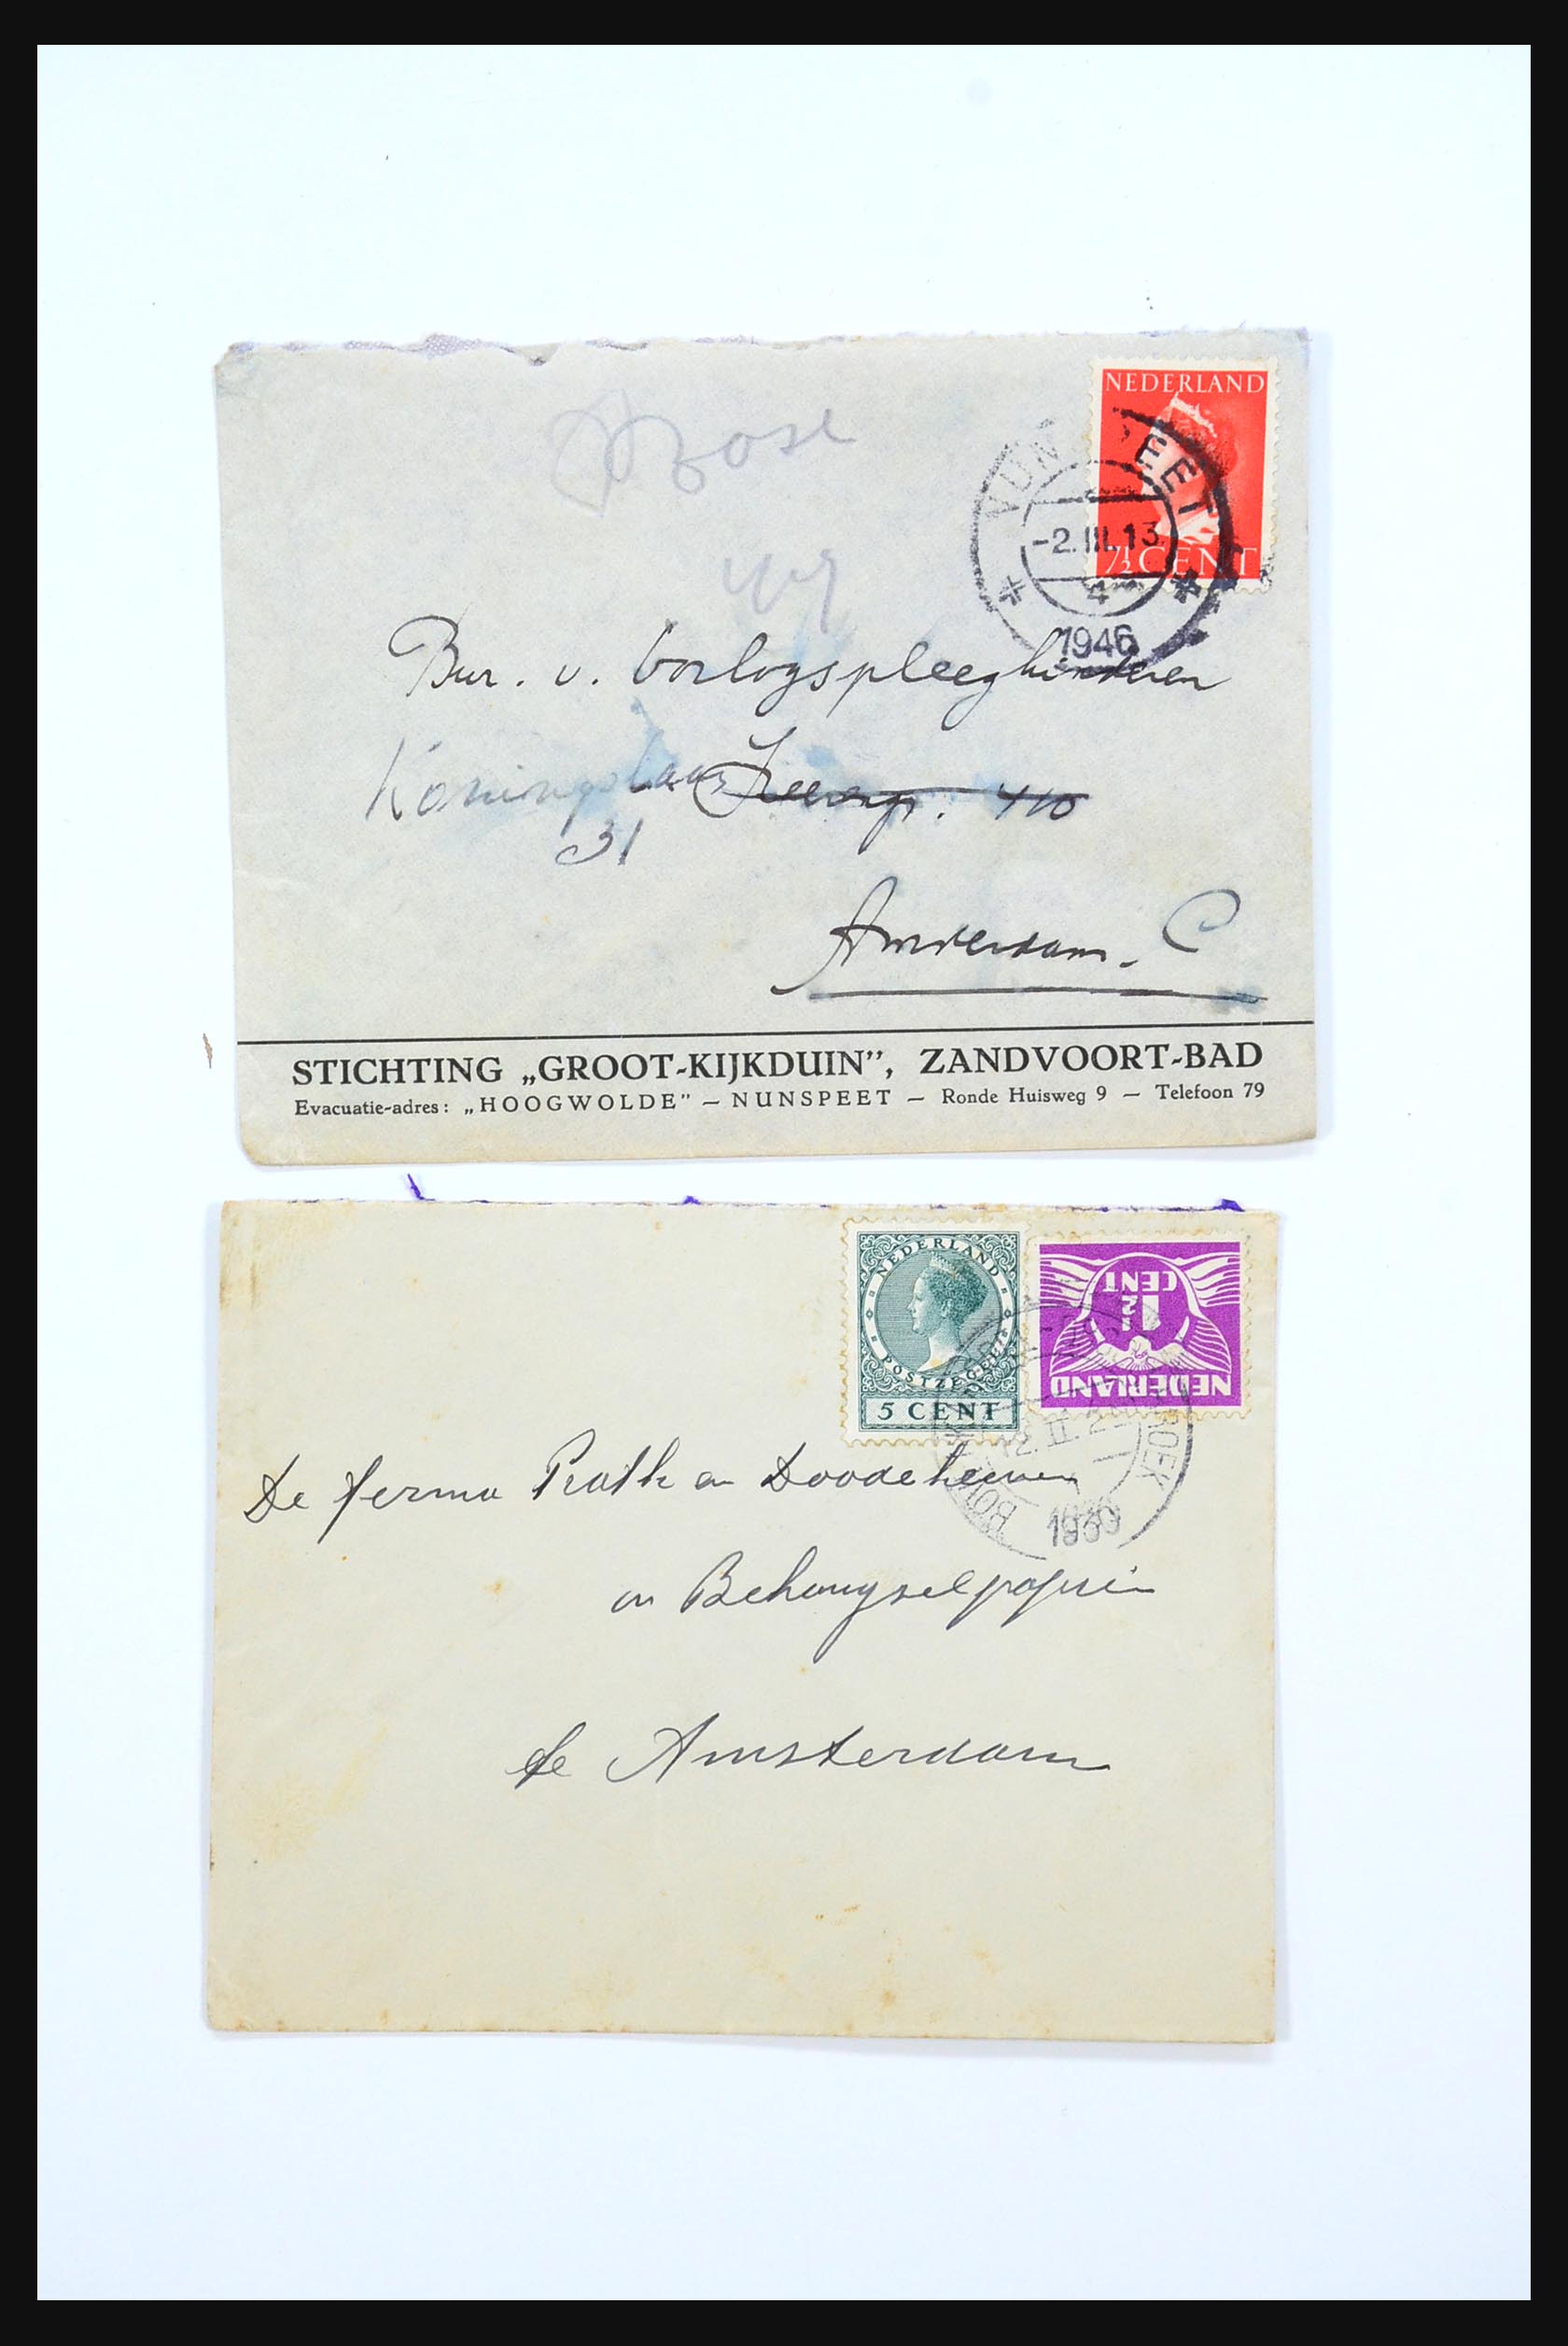 NEDERLAND
7½ CENT
NUNSPEET
-2.III.13
4
1946
Bur. v. Oorlogspleegkinderen
Koningslaan
410
31
Amsterdam. C
STICHTING „GROOT-KIJKDUIN”, ZANDVOORT-BAD
Evacuatie-adres: „HOOGWOLDE” — NUNSPEET — Ronde Huisweg 9 — Telefoon 79
NEDERLAND
POSTZEGEL
5 CENT
1½
CENT
NEDERLAND
De ferma Rath en Doodeheever
en Behangselpapier
te Amsterdam